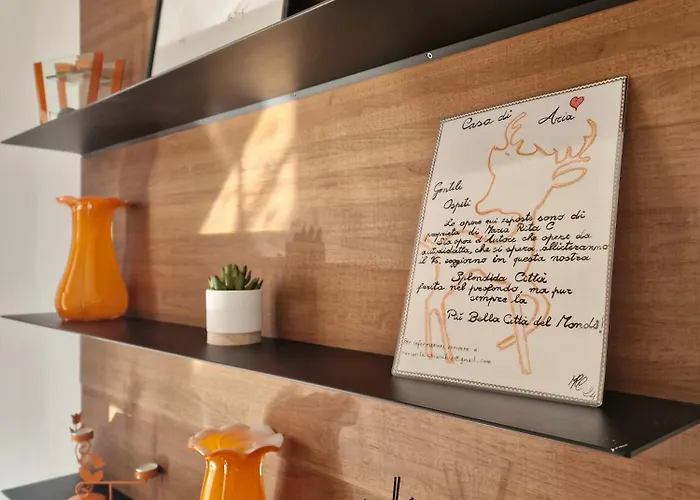 Casa di Aria
Gentili
Ospiti
Le opere qui esposte sono di
proprietà di Maria Rita C
Sia opere d'Autore che opere da
autodidatta, che si spera allieteranno
il Vs. soggiorno in questa nostra
Splendida Città
ferita nel profondo, ma pur
sempre la
Più Bella Città del Mondo!
Per informazioni scrivere a:
@gmail.com